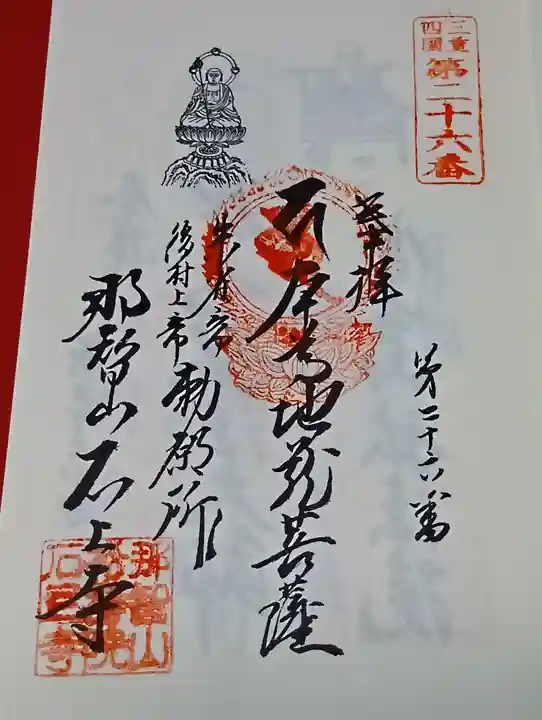 三重
四國
第二十六番
第二十六番
奉拝
地蔵菩薩
後村上帝
勅願所
那智山石上寺
那智山
石上寺